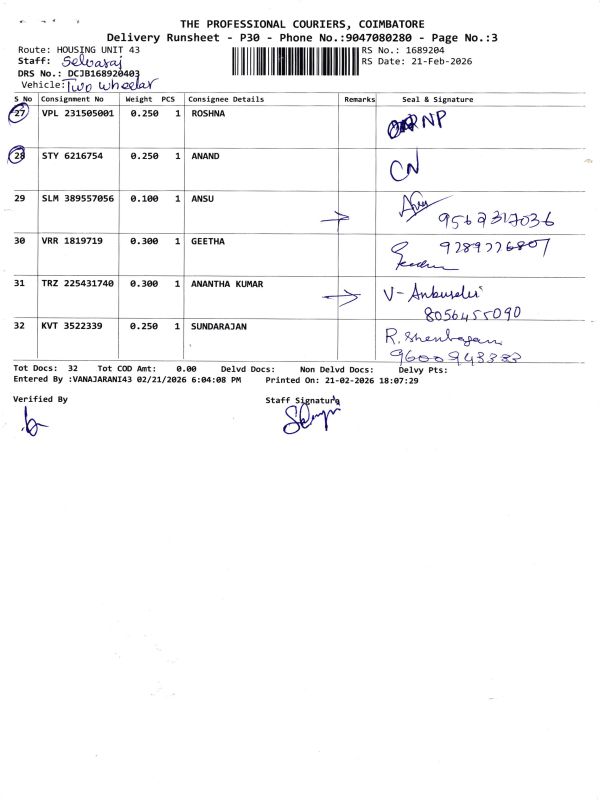 THE PROFESSIONAL COURIERS, COIMBATORE
Delivery Runsheet - P30 - Phone No.:9047080280 - Page No.:3
Route: HOUSING UNIT 43
RS No.: 1689204
Staff: Selvaraj
RS Date: 21-Feb-2026
DRS No.: DCJB168920403
Vehicle: Two wheelar
S No Consignment No Weight PCS Consignee Details Remarks Seal & Signature
27 VPL 231505001 0.250 1 ROSHNA RNP
28 STY 6216754 0.250 1 ANAND CN
29 SLM 389557056 0.100 1 ANSU
9562317036
30 VRR 1819719 0.300 1 GEETHA 9289776807
31 TRZ 225431740 0.300 1 ANANTHA KUMAR V- Anbuselvi
8056455090
32 KVT 3522339 0.250 1 SUNDARAJAN R. Shenbagam
9600943383
Tot Docs: 32 Tot COD Amt: 0.00 Delvd Docs: Non Delvd Docs: Delvy Pts:
Entered By :VANAJARANI43 02/21/2026 6:04:08 PM Printed On: 21-02-2026 18:07:29
Verified By Staff Signature